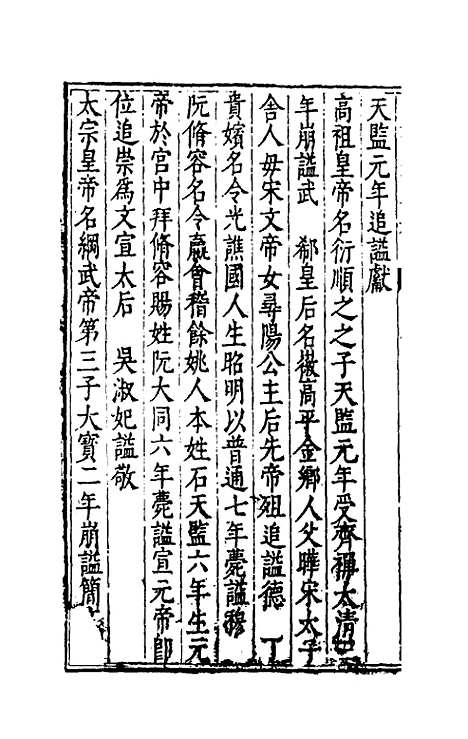 天監元年追謚獻
高祖皇帝名衍順之之子天監元年受齊禪太清
年崩謚武　郗皇后名徽高平金鄉人父曄宋太子
舍人毋宋文帝女尋陽公主后先帝殂追謚德　丁
貴嬪名令光譙國人生昭明以普通七年薨謚穆
阮脩容名令嬴會稽餘姚人本姓石天監六年生元
帝於宮中拜脩容賜姓阮大同六年薨謚宣元帝即
位追崇爲文宣太后　吳淑妃謚敬
太宗皇帝名綱武帝第三子大寶二年崩謚簡